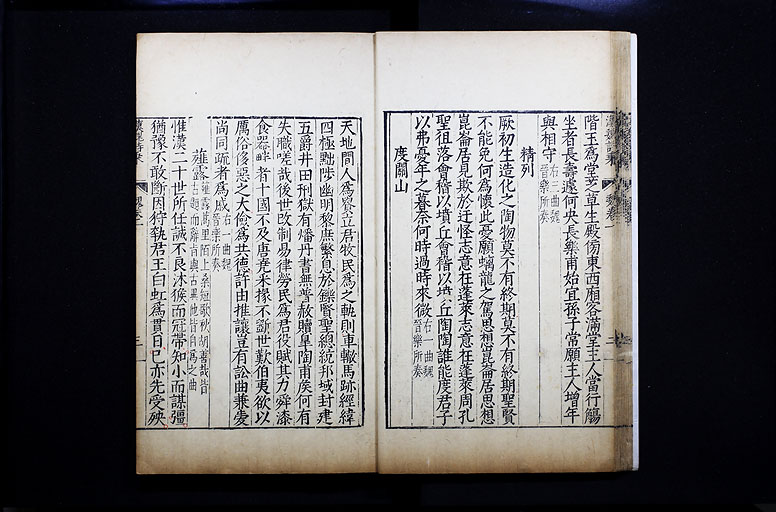 階玉爲堂芝草生殿傍東西廂客滿堂主人當行觴
坐者長壽遽何央長樂甫始宜孫子常願主人增年
與相守右三曲魏晉樂所奏
精列
厥初生造化之陶物莫不有終期莫不有終期聖賢
不能免何爲懷此憂願螭龍之駕思想崑崙居思想
崑崙居見欺於迂怪志意在蓬萊志意在蓬萊周孔
聖徂落會稽以墳丘會稽以墳丘陶陶誰能度君子
以弗憂年之暮奈何時過時來微右一曲魏晉樂所奏
度關山
天地間人爲貴立君牧民爲之軌則車轍馬跡經緯
四極黜陟幽明黎庶繁息於鑠賢聖總統邦域封建
五爵井田刑獄有燔丹書無普赦贖皐陶甫矦何有
失職嗟哉後世改制易律勞民爲君役賦其力舜漆
食器畔者十國不及唐堯采椽不斵世歎伯夷欲以
厲俗侈惡之大儉爲共德許由推讓豈有訟曲兼愛
尚同疏者爲戚右一曲魏晉樂所奏
薤露
惟漢二十世所任誠不良沐猴而冠帶知小而謀彊
猶豫不敢斷因狩執君王白虹爲貫日己亦先受殃